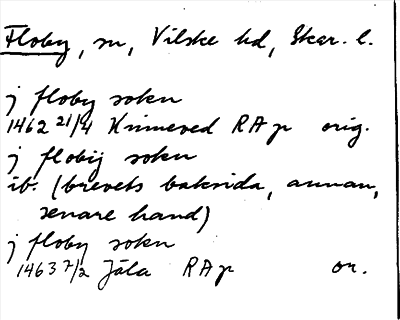 Floby, sn, Vilske hd, Skar. l.
j floby sokn
1462 21/4 Kinneved RAp orig.
j flobij sokn
ib. (brevets baksida, annan,
senare hand)
j floby sokn
1463 7/2 Jäla RAp or.